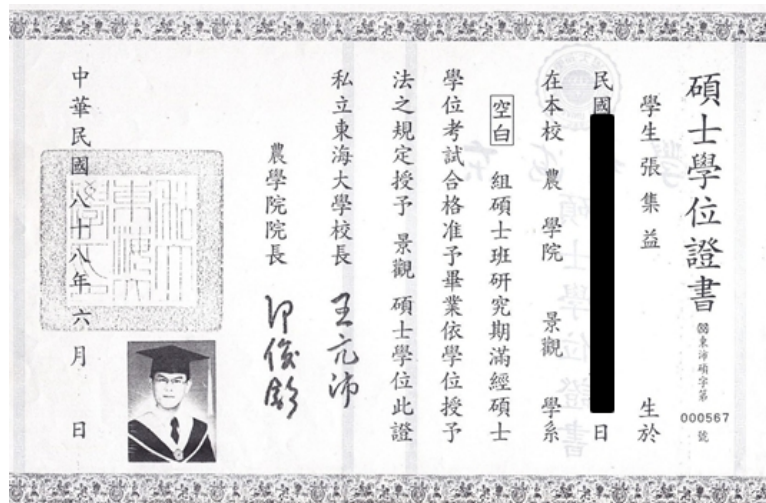 碩士學位證書
㊇東沛碩字第000567號
學生張集益 生於
民國 日
在本校 農 學院 景觀 學系
空白 組碩士班研究期滿經碩士
學位考試合格准予畢業依學位授予
法之規定授予 景觀 碩士學位此證
私立東海大學校長 王亢沛
農學院院長
中華民國八十八年六月 日